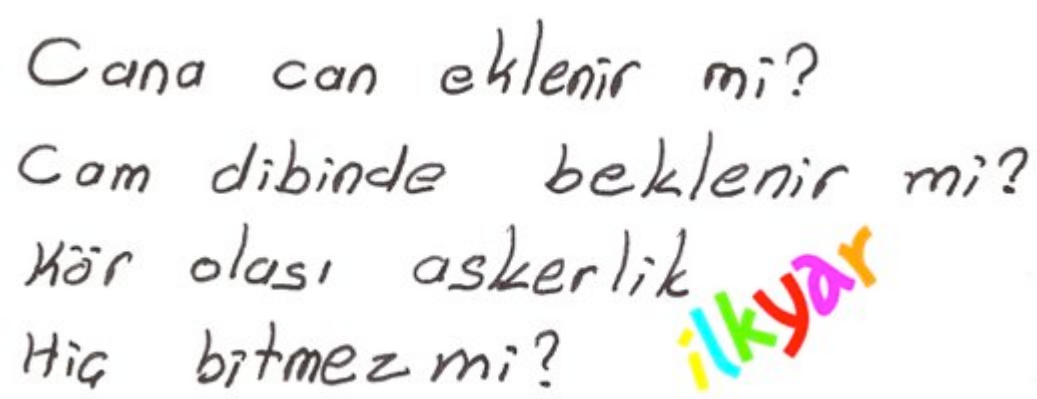 Cana can eklenir mi?
Cam dibinde beklenir mi?
Kör olası askerlik
Hiç bitmez mi?
ilkyar